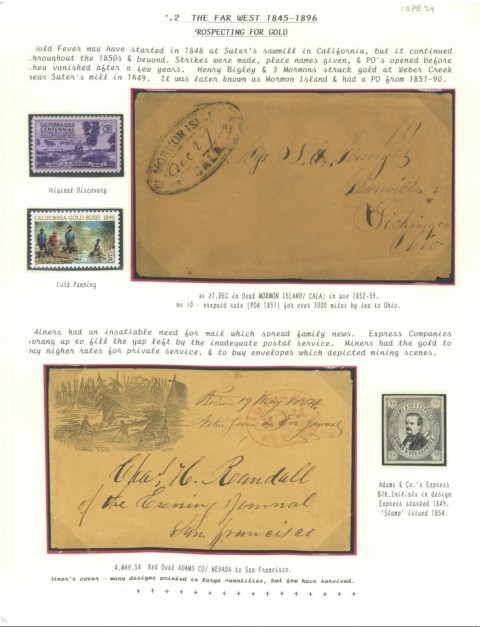 1SPE 29
.2 THE FAR WEST 1845-1896
ROSPECTING FOR GOLD
old Fever may have started in 1848 at Suter's sawmill in California, but it continued
hroughout the 1850s & beyond. Strikes were made, place names given, & PO's opened before
hey vanished after a few years. Henry Bigley & 3 Mormons struck gold at Weber Creek
near Suter's mill in 1849. It was later known as Mormon Island & had a PO from 1851-90.
CALIFORNIA GOLD
CENTENNIAL
Original Discovery
CALIFORNIA GOLD RUSH 1849
33
Gold Panning
MORMON ISLA
Dec 27
CALA.
Ohio
ms 27.DEC in Oval MORMON ISLAND/ CALA; in use 1852-59.
ms 10 - prepaid rate (POA 1851) for over 3000 miles by sea to Ohio.
Miners had an insatiable need for mail which spread family news. Express Companies
sprang up to fill the gap left by the inadequate postal service. Miners had the gold to
pay higher rates for private service, & to buy envelopes which depicted mining scenes.
LONG TOM
Chas. H. Randall
of the Evening Journal
San francisco
Adams & Co.'s Express
Blk.Initials in design
Express started 1849.
'Stamp' issued 1854.
4.MAY.54 Red Oval ADAMS CO/ NEVADA to San Francisco.
Miner's cover - many designs printed in large quantities, but few have survived.
+ + + + + + + + + + + + + + + +